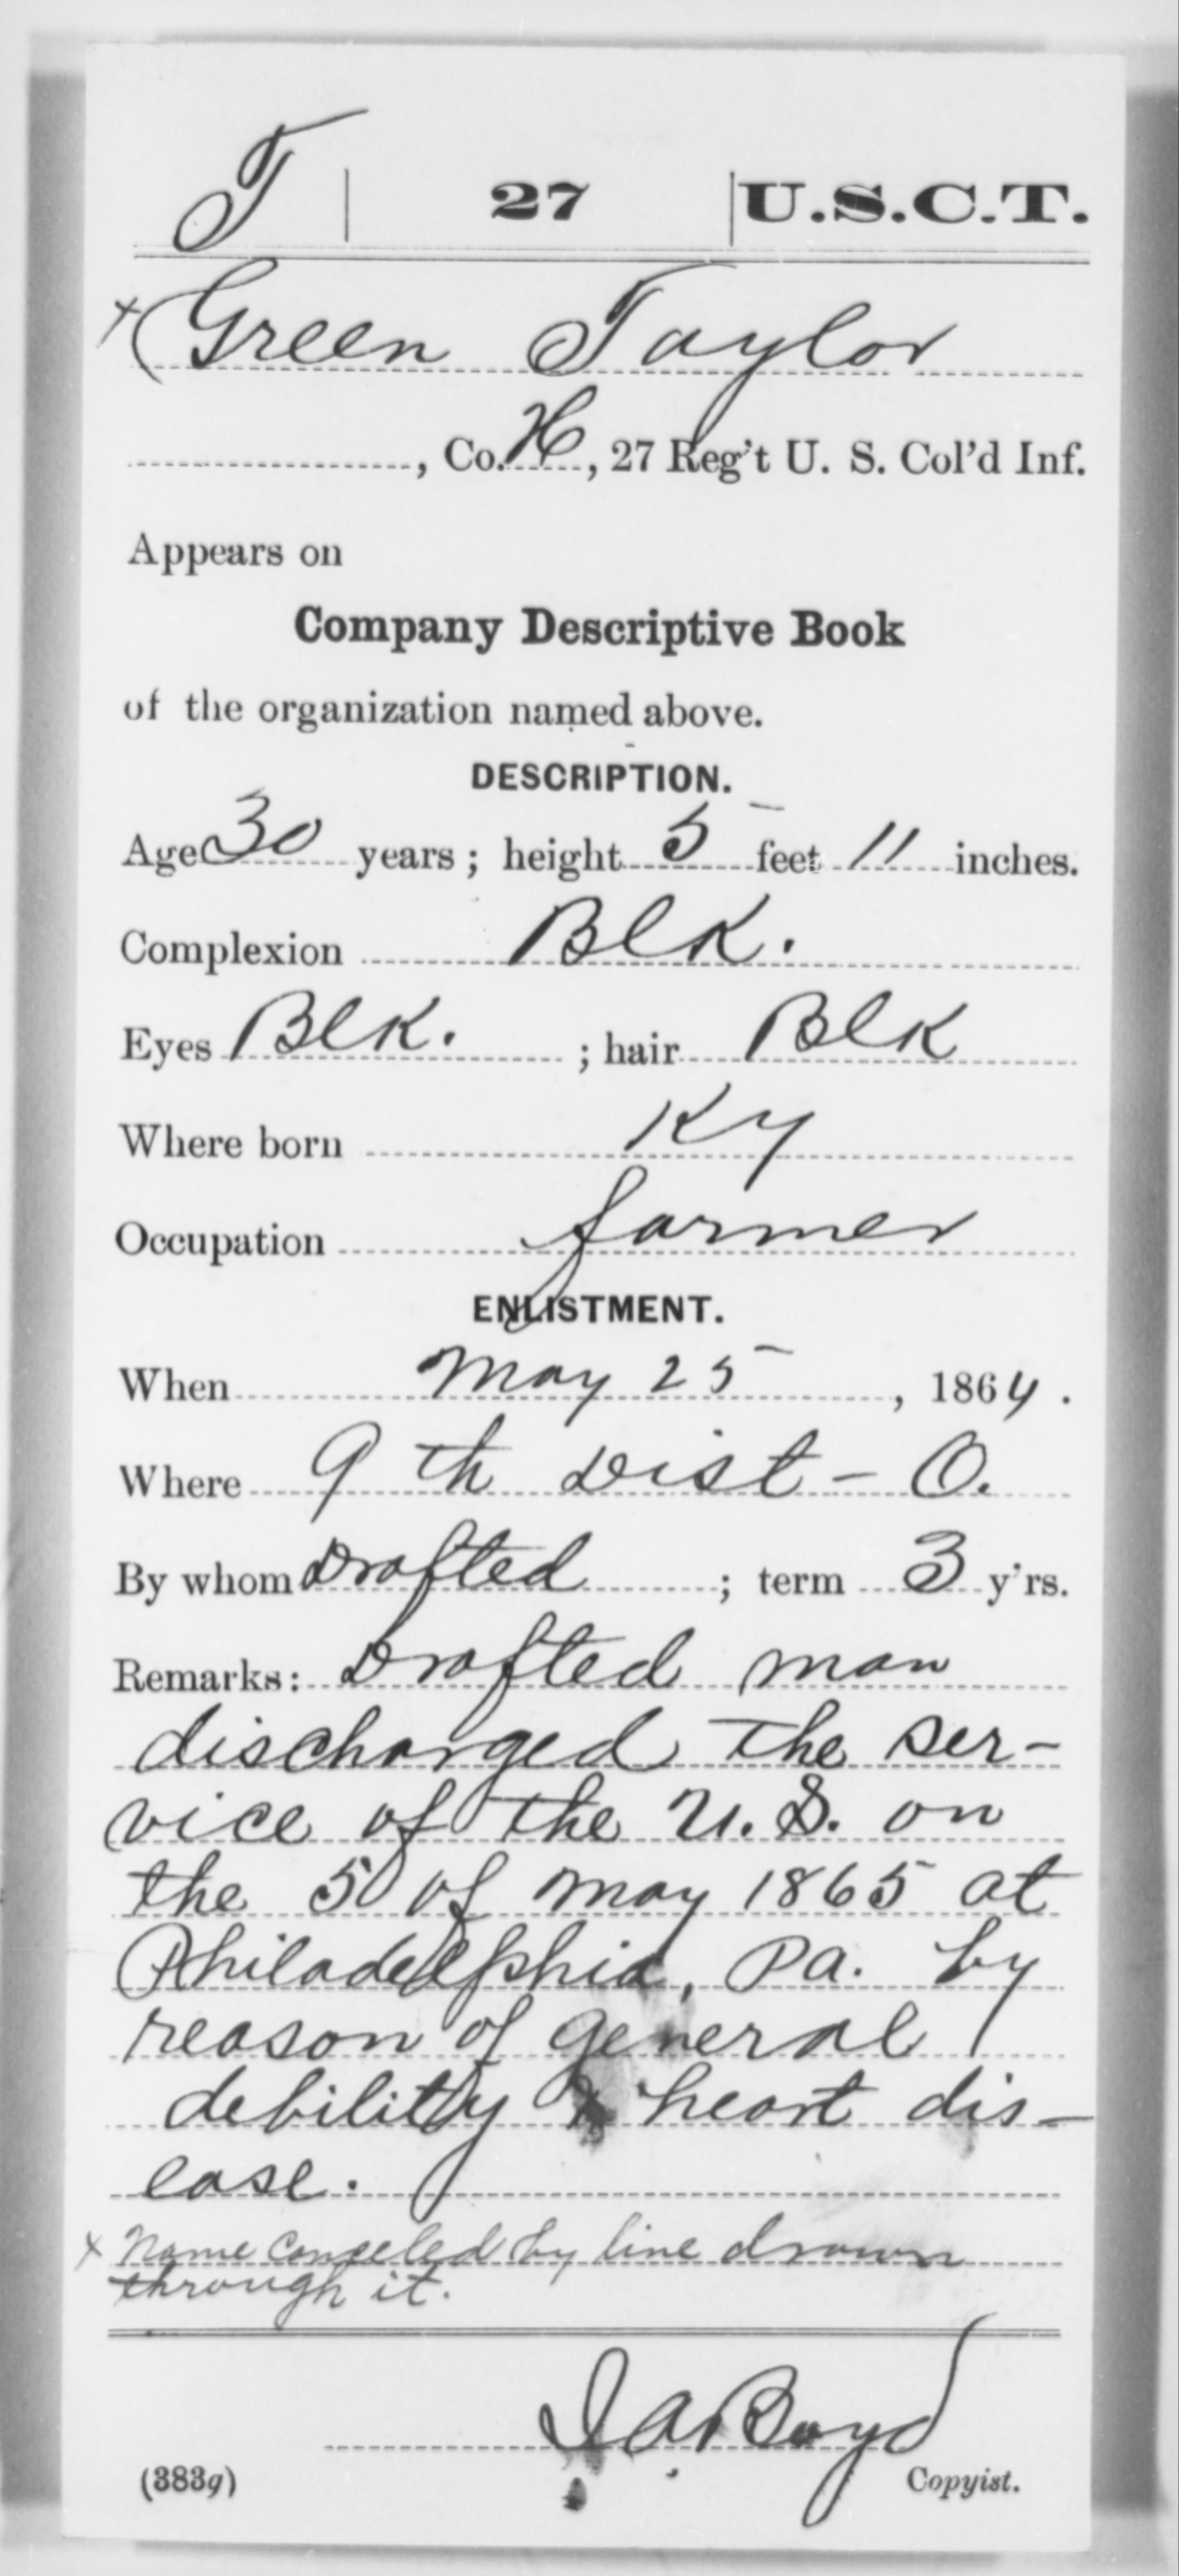 T | 27 | U.S.C.T.
x Green Taylor
, Co. H, 27 Reg't U. S. Col'd Inf.
Appears on
Company Descriptive Book
of the organization named above.
DESCRIPTION.
Age 30 years; height 5 feet 11 inches.
Complexion Blk.
Eyes Blk. ; hair Blk
Where born Ky
Occupation farmer
ENLISTMENT.
When May 25, 1864.
Where 9th Dist - O.
By whom Drafted ; term 3 y'rs.
Remarks: Drafted man
discharged the ser-
vice of the U.S. on
the 5 of May 1865 at
Philadelphia, Pa. by
reason of general
debility & heart dis-
ease.
x Name canceled by line drawn
through it.
I A Boyd
(383g) Copyist.